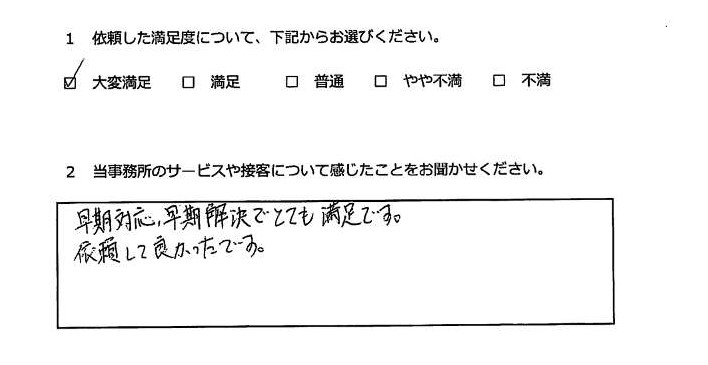 1 依頼した満足度について、下記からお選びください。
☑ 大変満足 □ 満足 □ 普通 □ やや不満 □ 不満
2 当事務所のサービスや接客について感じたことをお聞かせください。
早期対応,早期解決でとても満足です。
依頼して良かったです。